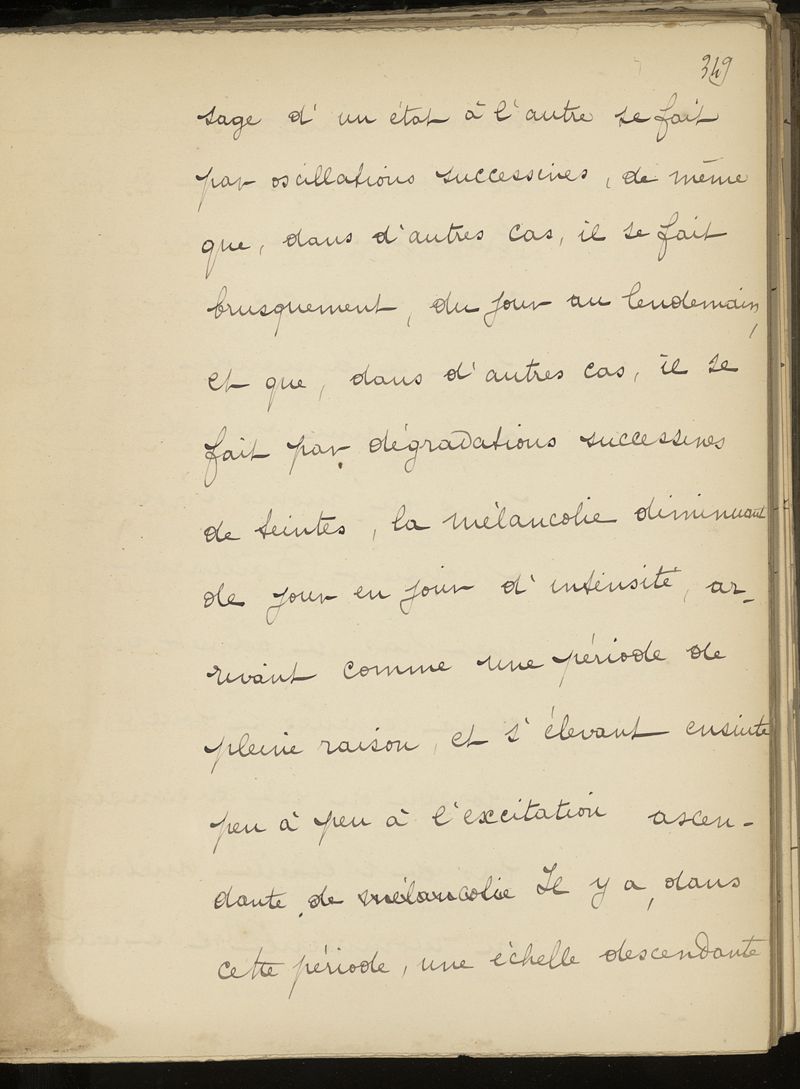 349
sage d'un état à l'autre se fait
par oscillations successives, de même
que, dans d'autres cas, il se fait
brusquement, du jour au lendemain,
et que, dans d'autres cas, il se
fait par dégradations successives
de teintes, la mélancolie diminuant
de jour en jour d'intensité, ar-
rivant comme une période de
pleine raison, et s'élevant ensuite
peu à peu à l'excitation ascen-
dante de mélancolie Il y a, dans
cette période, une échelle descendante